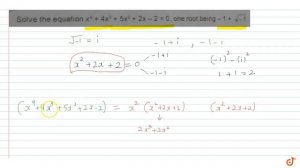 Solve the equation x⁴ + 4x³ + 5x² + 2x – 2 = 0, one root being – 1 + √-1
√-1 = i
-1+i , -1-i
x² + 2x + 2 = 0
-1+i
-1-i
(-1)² - (i)²
1 + 1 = 2
(x⁴+4x³+5x²+2x-2) = x² (x²+2x+2) (x²+2x+2)
↓
2x³+2x²